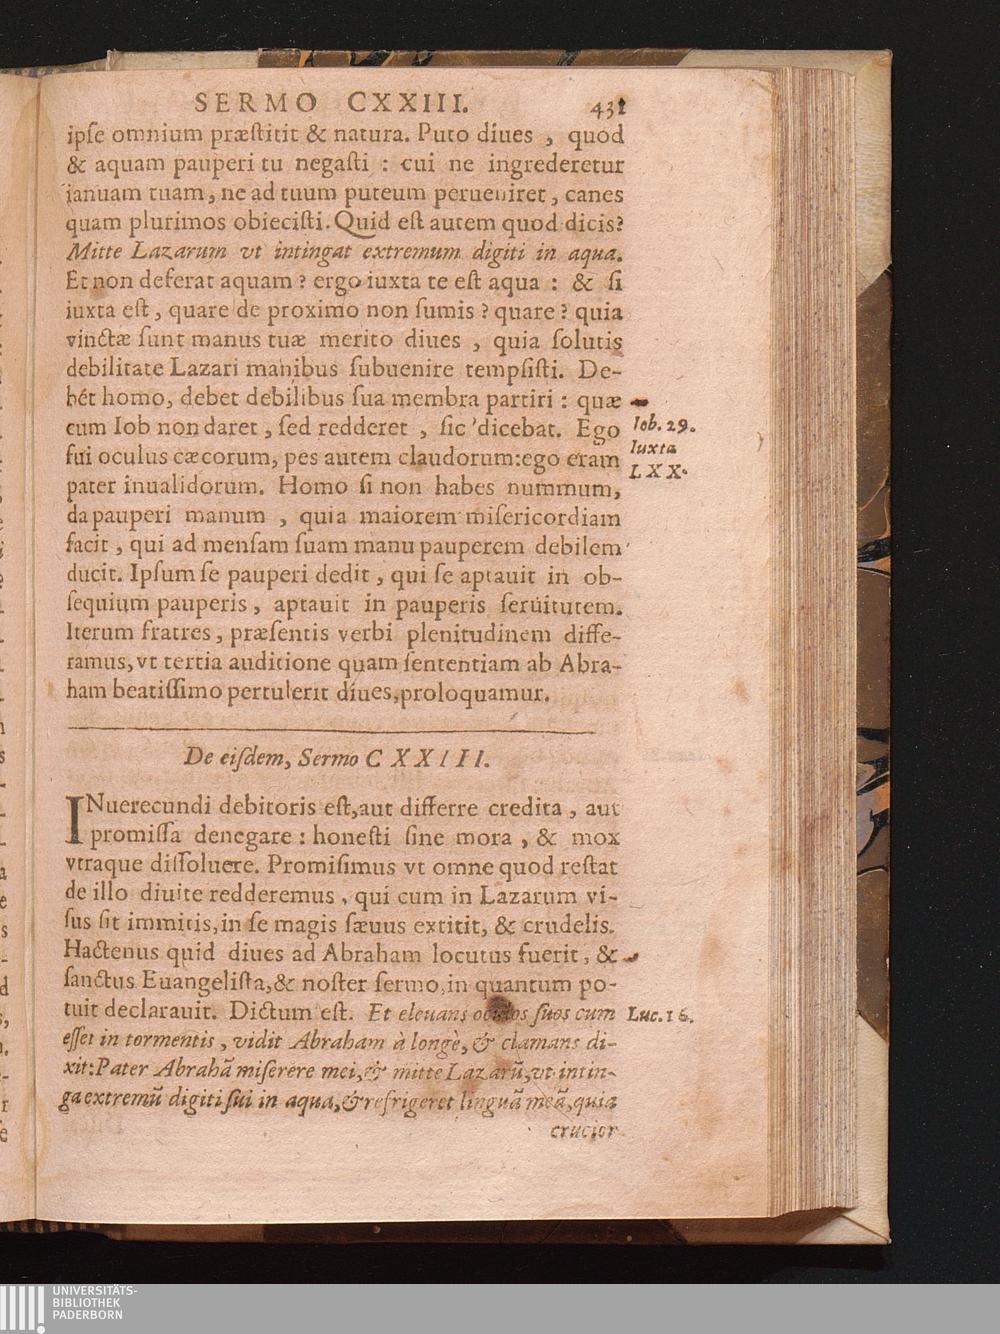 SERMO CXXIII. 431
ipſe omnium præſtitit & natura. Puto diues , quod
& aquam pauperi tu negaſti : cui ne ingrederetur
ianuam tuam, ne ad tuum puteum perueniret, canes
quam plurimos obieciſti. Quid eſt autem quod dicis?
Mitte Lazarum vt intingat extremum digiti in aqua.
Et non deferat aquam ? ergo iuxta te eſt aqua : & ſi
iuxta eſt, quare de proximo non ſumis ? quare ? quia
vinctæ ſunt manus tuæ merito diues , quia ſolutis
debilitate Lazari manibus ſubuenire tempſiſti. De-
bét homo, debet debilibus ſua membra partiri : quæ
cum Iob non daret, ſed redderet , ſic dicebat. Ego
fui oculus cæcorum, pes autem claudorum:ego eram
pater inualidorum. Homo ſi non habes nummum,
da pauperi manum , quia maiorem miſericordiam
facit, qui ad menſam ſuam manu pauperem debilem
ducit. Ipſum ſe pauperi dedit, qui ſe aptauit in ob-
ſequium pauperis, aptauit in pauperis ſeruitutem.
Iterum fratres, præſentis verbi plenitudinem diffe-
ramus, vt tertia auditione quam ſententiam ab Abra-
ham beatiſſimo pertulerit diues,proloquamur.
Iob. 29.
Iuxta
LXX.
De eiſdem, Sermo CXXIII.
INuerecundi debitoris eſt,aut differre credita , aut
promiſſa denegare : honeſti ſine mora , & mox
vtraque diſſoluere. Promiſimus vt omne quod reſtat
de illo diuite redderemus , qui cum in Lazarum vi-
ſus ſit immitis,in ſe magis ſæuus extitit, & crudelis.
Hactenus quid diues ad Abraham locutus fuerit, &
ſanctus Euangeliſta,& noſter ſermo,in quantum po-
tuit declarauit. Dictum eſt. Et eleuans oculos ſuos cum
eſſet in tormentis , vidit Abraham à longè, & clamans di-
xit:Pater Abrahã miſerere mei,& mitte Lazarũ,vt intin-
ga extremũ digiti ſui in aqua,& refrigeret linguã meã,quia
crucior
Luc. 16.
UNIVERSITÄTS-
BIBLIOTHEK
PADERBORN